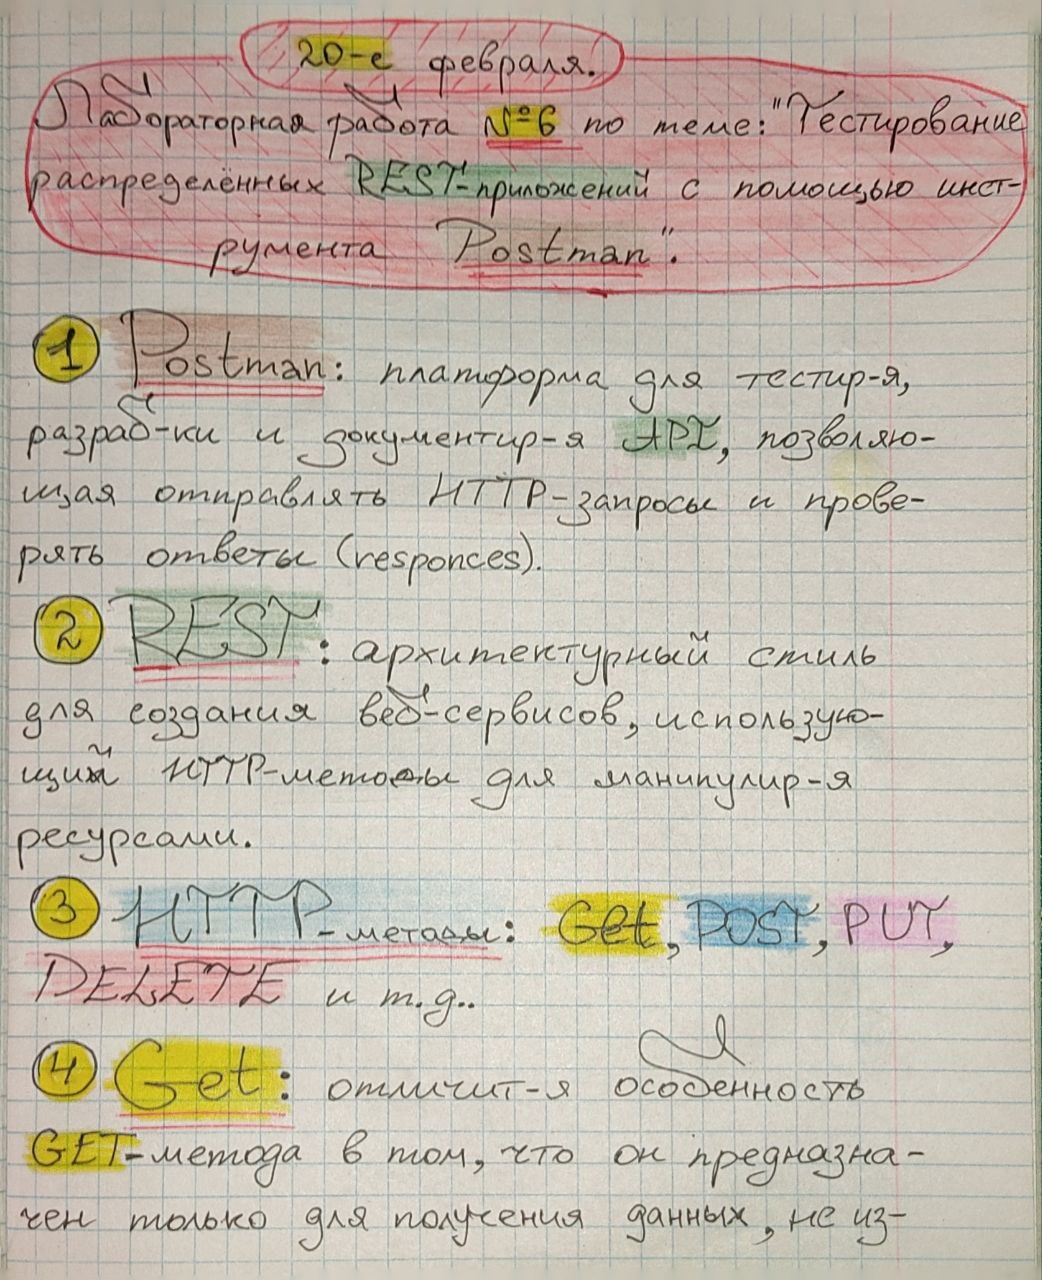 20-е февраля.
Лабораторная работа №6 по теме: "Тестирование
распределённых REST-приложений с помощью инст-
румента Postman".
1 Postman: платформа для тестир-я,
разраб-ки и документир-я API, позволяю-
щая отправлять HTTP-запросы и прове-
рять ответы (responces).
2 REST: архитектурный стиль
для создания веб-сервисов, использую-
щий HTTP-методы для манипулир-я
ресурсами.
3 HTTP-методы: Get, POST, PUT,
DELETE и т.д..
4 Get: отличит-я особенность
GET-метода в том, что он предназна-
чен только для получения данных, не из-